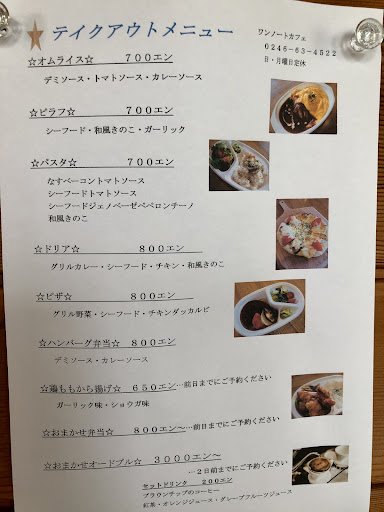 テイクアウトメニュー
ワンノートカフェ
0246-63-4522
日・月曜日定休
☆オムライス☆ 700エン
デミソース・トマトソース・カレーソース
☆ピラフ☆ 700エン
シーフード・和風きのこ・ガーリック
☆パスタ☆ 700エン
なすベーコントマトソース
シーフードトマトソース
シーフードジェノベーゼペペロンチーノ
和風きのこ
☆ドリア☆ 800エン
グリルカレー・シーフード・チキン・和風きのこ
☆ピザ☆ 800エン
グリル野菜・シーフード・チキンダッカルビ
☆ハンバーグ弁当☆ 800エン
デミソース・カレーソース
☆鶏ももから揚げ☆ 650エン…前日までにご予約ください
ガーリック味・ショウガ味
☆おまかせ弁当☆ 800エン～…前日までにご予約ください
☆おまかせオードブル☆ 3000エン～
…2日前までにご予約ください
セットドリンク 200エン
ブラウンチップのコーヒー
紅茶・オレンジジュース・グレープフルーツジュース